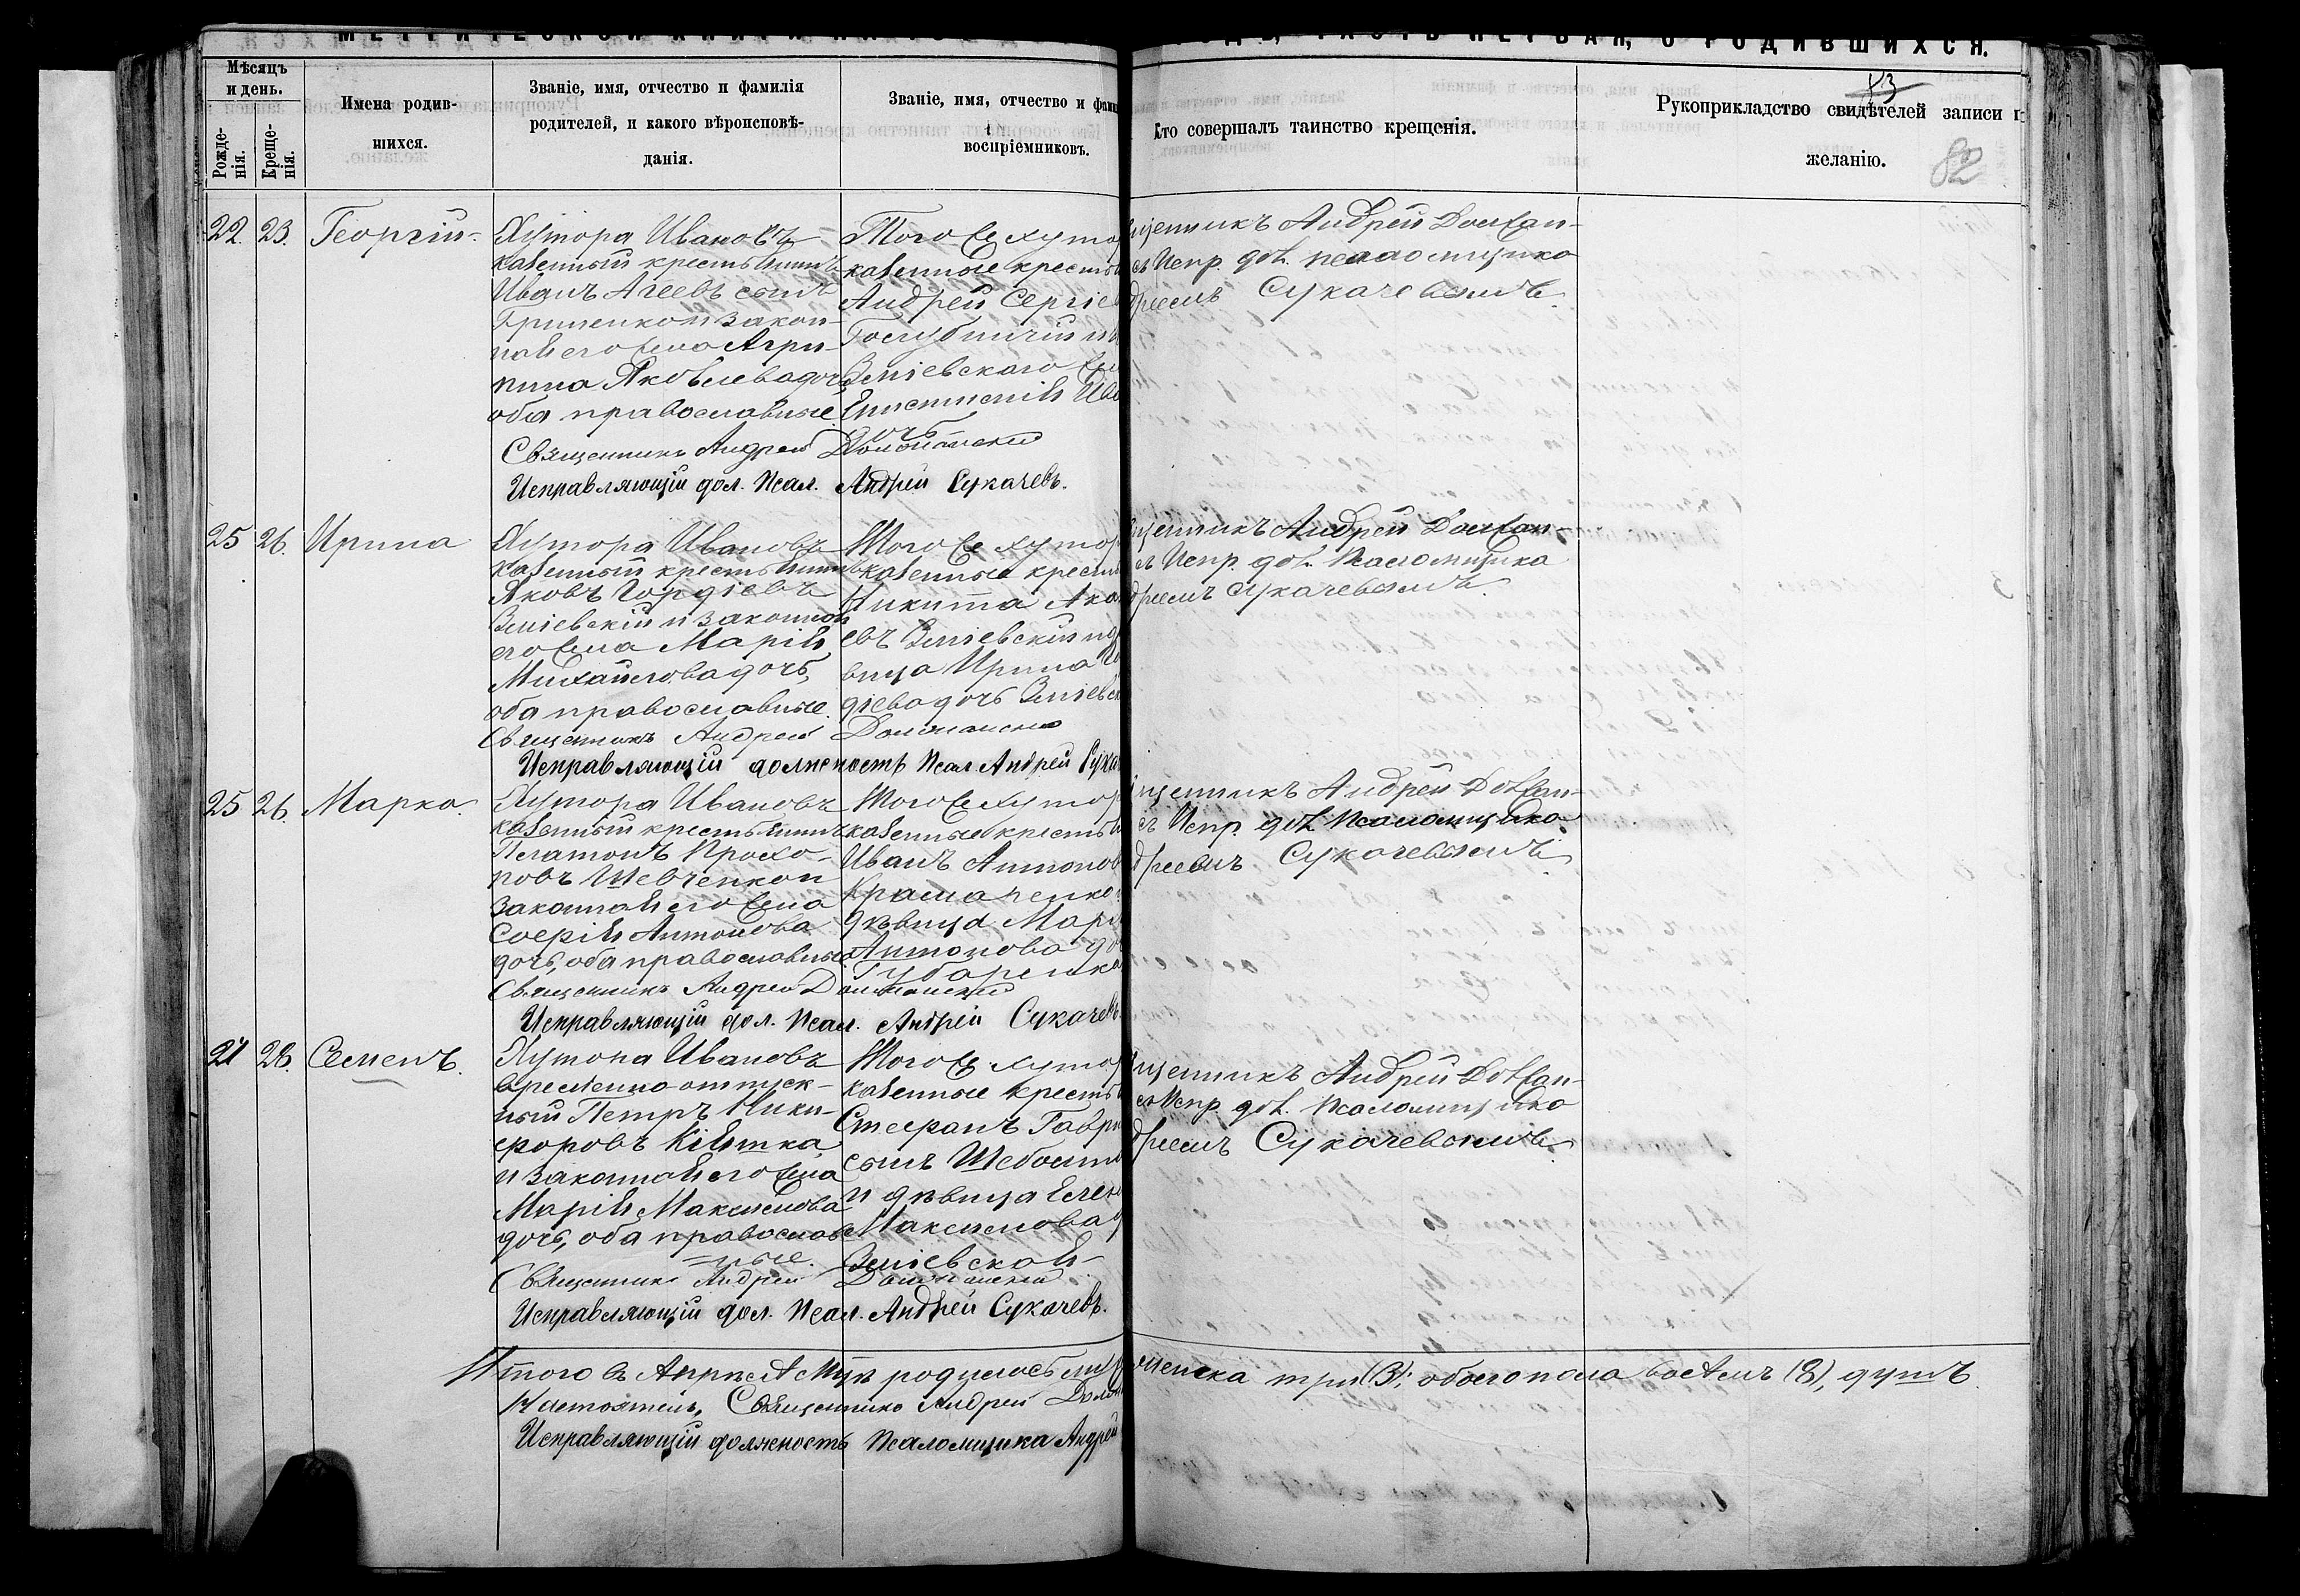 МЕТРИЧЕСКОЙ КНИГИ НА
ГОДЪ, ЧАСТЬ ПЕРВАЯ, О РОДИВШИХСЯ.
Мѣсяцъ и день.
Рожде-нія.
Креще-нія.
Имена родив-
шихся.
Званіе, имя, отчество и фамилія
родителей, и какого вѣроисповѣ-
данія.
Званіе, имя, отчество и фами
воспріемниковъ.
Кто совершалъ таинство крещенія.
Рукоприкладство свидѣтелей записи п
желанію.
83
82
22. 23. Георгій.
Хутора Ивановъ
казенный крестьянинъ
Иванъ Агеевъ сынъ
Гриненко и закон-
ная его жена Агри-
пина Яковлева дочь,
оба православные.
Того же хутор
казенные крестья
Андрей Сергіев
Голубничій и
Зміевскаго же
Епистимія Ива
дочь
щенникъ Андрей Должан-
съ Испр. дол. псаломщика
дреемъ Сукачевымъ.
Священникъ Андрей Должанскій
Исправляющій дол. Псал. Андрей Сукачевъ.
25 26. Ирина
Хутора Ивановъ
казенный крестьянинъ
Яковъ Гордіевъ
Зміевскій и законная
его жена Марія
Михайлова дочь,
оба православные.
Того же хутор
казенные крестья
Никита Яко
евъ Зміевскій и д
вица Ирина Го
діева дочь Зміевск
щенникъ Андрей Должан-
съ Испр. дол. Псаломщика
дреемъ Сукачевымъ.
Священникъ Андрей Должанскій
Исправляющій должность Псал Андрей Сука
25 26. Марко.
Хутора Ивановъ
казенный крестьянинъ
Платонъ Прохо-
ровъ Шевченко и
законная его жена
Софія Антонова
дочь, оба православные
Того же хутор
казенные крестья
Иванъ Антонов
Крамаренко
дѣвица Мари
Антонова до
Губаренко
щенникъ Андрей Должан-
съ Испр. дол. Псаломщика
дреемъ Сукачевымъ
Священникъ Андрей Должанскій
Исправляющій дол. Псал. Андрей Сукачевъ
27 28. Семенъ.
Хутора Ивановъ
временно отпуск-
ный Петръ Ники-
форовъ Кіятка
и законная его жена
Марія Максимова
дочь, оба православ
=ные.
Того же хутор
казенные крестья
Стефанъ Гаври
сынъ
и дѣвица Елена
Максимова д
Зміевская
щенникъ Андрей Должан-
съ Испр. дол. Псаломщика
дреемъ Сукачевымъ.
Священникъ Андрей Должанскій
Исправляющій дол. Псал. Андрей Сукачевъ.
Итого въ Апрѣлѣ М-цѣ родилось му
женска три (3); обоего пола восемь (8), душъ.
Настоятель, Священникъ Андрей Долж
Исправляющій должность Псаломщика Андрей